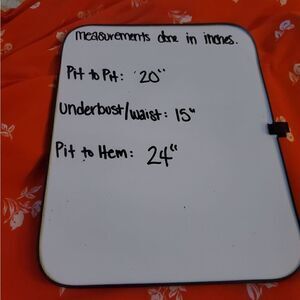 measurements done in inches.
Pit to Pit: 20"
underbust/waist: 15"
Pit to Hem: 24"